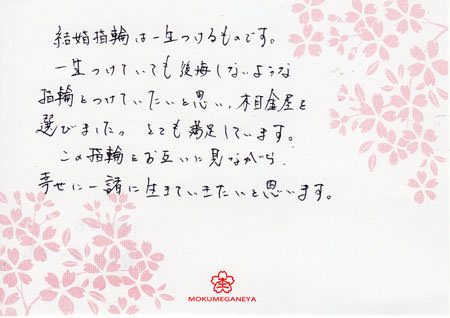 結婚指輪は一生つけるものです。
一生つけていても後悔しないような
指輪をつけていたいと思い、杢目金屋を
選びました。とても満足しています。
この指輪をお互いに見ながら、
幸せに一諸に生きていきたいと思います。
MOKUMEGANEYA